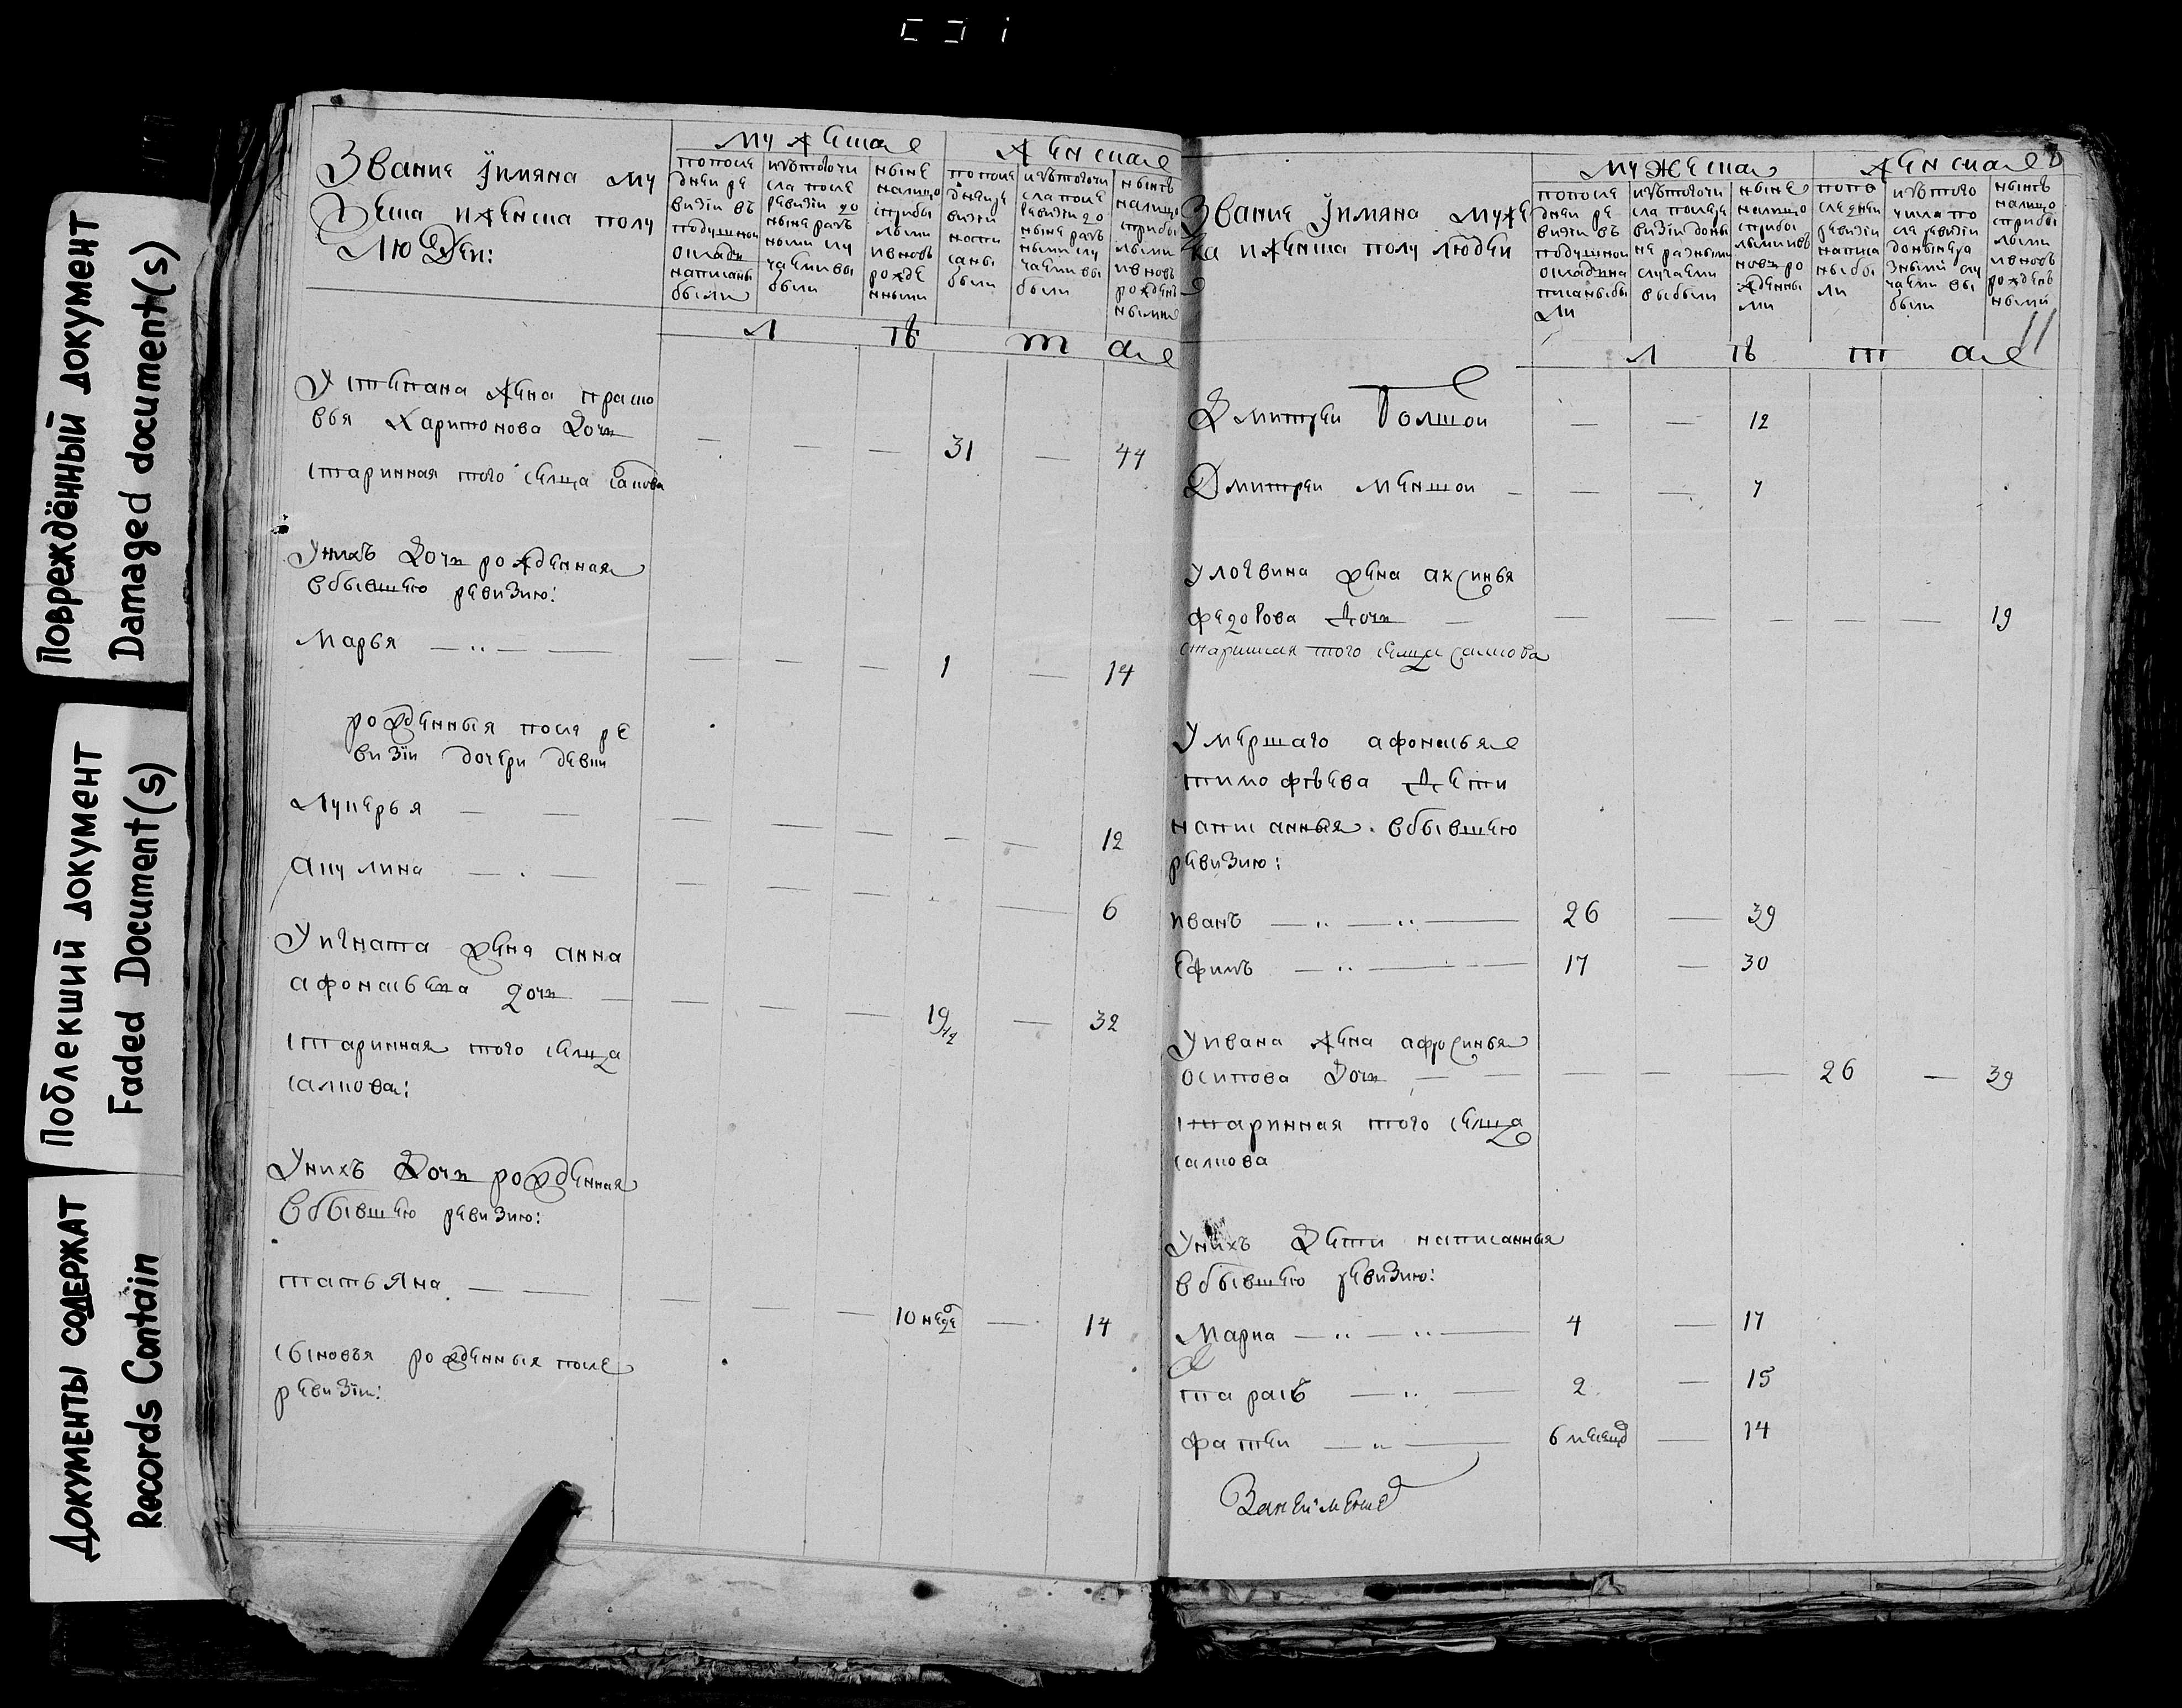 Повреждённый документ
Damaged document(s)
Поблекший документ
Faded Document(s)
Документы содержат
Records Contain
Звание Їимяна му
жеска иженска полу
людей:
мужеска
женска
попосле
дней ре
визїи въ
подушной
окладъ
написаны
были
изътогочи
сла после
ревизїи до
ныне разъ
ными слу
чаеми вы
были
ныне
налицо
сприбы
лыми
ивновь
рожде
нными
попосле
дней ре
визїи
напи
саны
были
изътогочи
сла после
ревизїи до
ныне разъ
ными слу
чаеми вы
были
нынѣ
налицо
сприбы
лыми
ивновь
рожден
ными
л ѣ т а
Устепана жена праско
вья Харитонова дочь — — — 31 — 44
старинная того селца
Унихъ дочь рожденная
вбывшею ревизию:
Марья — — — — 1 — 14
рожденныя после ре
визїи дочери девки
Лукерья — — — — — — 12
Акулина — — — — — — 6
Уигната жена анна
афонасьева дочь — — — — 19 — 32
старинная того селца
салкова:
Унихъ дочь рожденная
вбывшею ревизию:
татьяна — — — — 10 неде — 14
сыновья рожденныя после
ревизїи:
Звание Їимяна муже
ка иженска полу людей
мужеска
женска
попосле
дней ре
визїи въ
подушной
окладъна
писаныбы
ли
изътогочи
сла послере
визїи доны
не разными
случаеми
выбыли
ныне
налицо
сприбы
лыми ивъ
новь ро
жденны
ми
попо
следней
ревизїи
написа
ныбы
ли
изътого
числа по
сле ревизїи
донынера
зными слу
чаеми вы
были
нынѣ
налицо
сприбы
лыми
ивновь
рожденъ
ными
11
л ѣ т а
Дмитрей Болшой — — 12
Дмитрей меншой — — — 7
улогвина жена аксинья
федорова дочь — — — — — — 19
старинная того селца салкова
Умершаго афонасья
тимофѣева дети
написанныя вбывшею
ревизию:
иванъ — — 26 — 39
Ефимъ — — 17 — 30
Уивана жена афросинья
осипова дочь — — — — — 26 — 39
старинная того селца
салкова
Унихъ дети написанныя
вбывшею ревизию:
Марка — — 4 — 17
тарасъ — — 2 — 15
фатей — — 6 месецо — 14